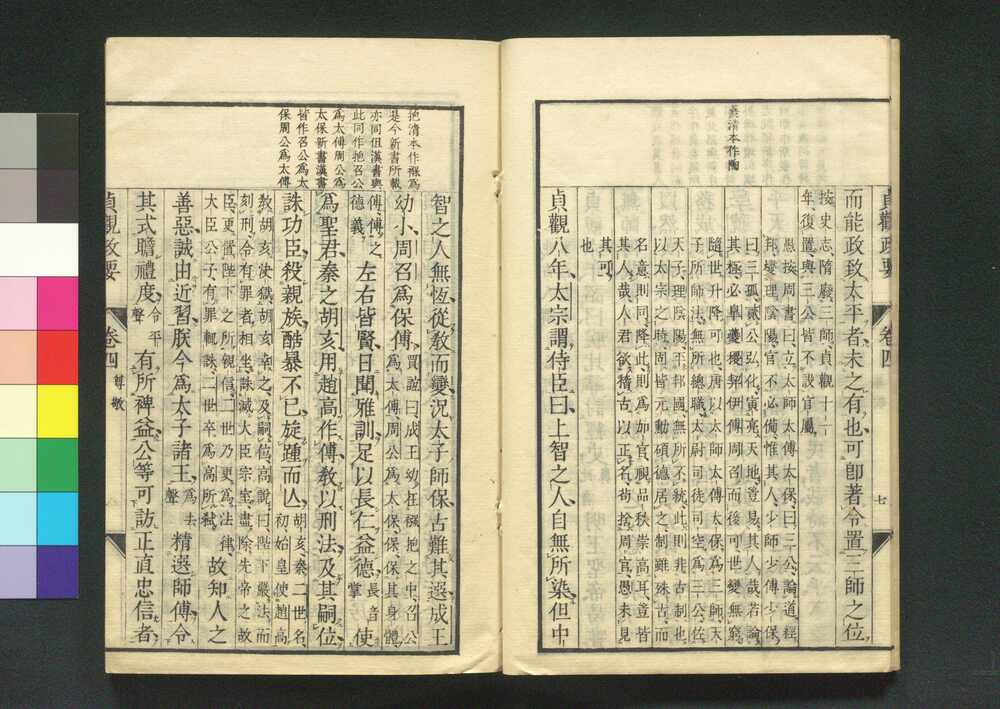 貞觀政要 卷四 七
而能政致太平者未之有也可卽著令置三師之位
按史志隋廢三師貞觀十一
年復置與三公皆不設官屬
愚按周書曰立太師太傅太保曰三公論道經
邦燮理陰陽官不必備惟其人少師少傅少保
曰三孤貳公弘化寅亮天地豈易其人哉若論
其極必皐夔稷契伊傅周召而後可世變無窮
隨世升降可也唐以太師太傅太保爲三師天
子所師法無所總職太尉司徒司空爲三公佐
天子理陰陽平邦國無所不統此則非古制也
以太宗之時固皆元勳碩德居之制雖殊古而
名意則同降此則爲加官視品秩崇高耳豈皆
其人哉人君欲稽古以正名苟捨周官愚未見
其可
也
貞觀八年太宗謂侍臣曰上智之人自無所染但中
𦍒淸本作陶
智之人無恆從教而變況太子師保古難其選成王
幼小周召爲保傅賈誼曰成王幼在襁抱之中召公
爲太保周公爲太傅保保其身體
傅傅之
德義左右皆賢日聞雅訓足以長仁益德長音
掌使
爲聖君秦之胡亥用趙高作傅教以刑法及其嗣位
誅功臣殺親族酷暴不已旋踵而亾胡亥秦二世名
初始皇使趙高
教胡亥決獄胡亥幸之及嗣位高說曰陛下嚴法而
刻刑令有罪者相坐誅滅大臣宗室盡除先帝之故
臣更置陛下之所親信二世乃更爲法律
大臣公子有罪輒誅二世卒爲高所弑故知人之
善惡誠由近習朕今爲太子諸王爲去
聲精選師傅令
其式瞻禮度令平
聲有所裨益公等可訪正直忠信者
抱淸本作褓爲
是今新書所載
亦同但漢書與
此同作抱召公
爲太傅周公爲
太保新書漢書
皆作召公爲太
保周公爲太傅
貞觀政要 卷四 尊敬